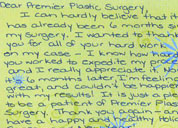 Dear Premier Plastic Surgery,
I can hardly believe that it
has already been 6 months si
my surgery. I wanted to thank
you for all of your hard work
on my case - I know how hard
you worked to expedite my proce
and I really appreciate it. No
it's 6 months later, I'm feelin
great, and couldn't be happier
with my results! It is just a ple
to be a patient of Premier Plas
Surgery. Thank you again - an
have a happy and healthy Holi